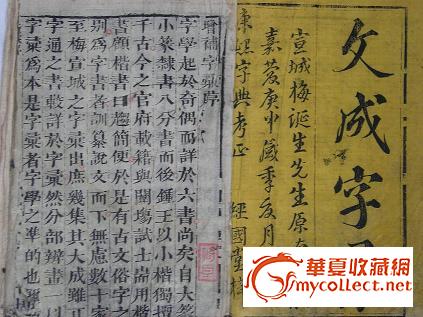 文成字
宣城梅誕生先生原
嘉慶庚申歲季夏月
康熙字典考正 經國堂梓
增補字彙序
字學起於奇偶而詳於六書尚矣自大篆
小篆隸書八分書而後鍾王以小楷獨擅
千古今之官府載籍與闈塲試士耑用楷
書顧楷書日趨簡便於是有古文俗字之
別為字書者訓纂說文而下無慮數十家
至梅宣城之字彙出庶幾集其大成雖正
字通之書較詳於字彙然分部辯畫一以
字彙為本是字彙者字學之準的也
華夏收藏網
mycollect.net